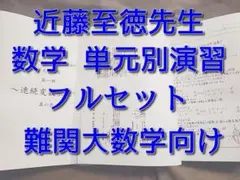 近藤至徳先生
数学 単元別演習
フルセット
難関大数学向け
～連続変